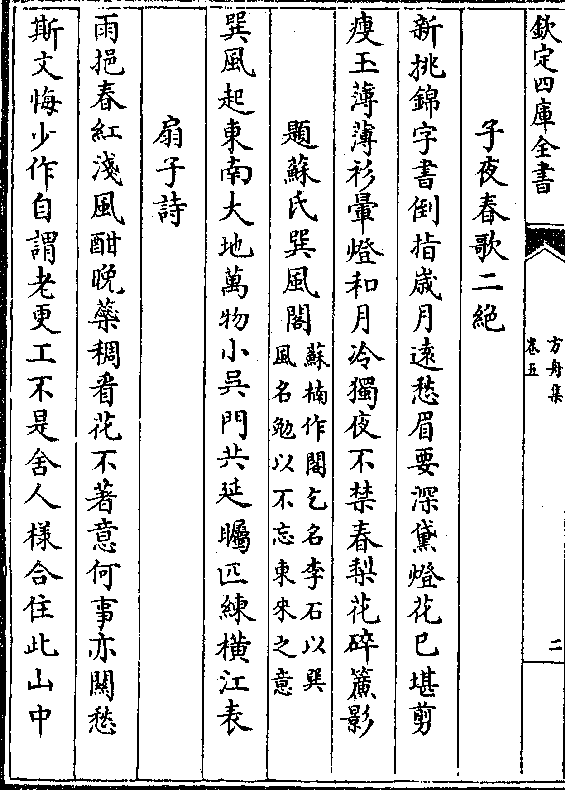 欽定四庫全書
方舟集
卷五
二
子夜春歌二絕
新挑錦字書倒指歲月遠愁眉要深黛燈花已堪剪
瘦玉薄薄衫暈燈和月冷獨夜不禁春梨花碎簾影
題蘇氏巽風閣
蘇楠作閣乞名李石以巽
風名勉以不忘東來之意
巽風起東南大地萬物小吳門共延矚匹練橫江表
扇子詩
雨挹春紅淺風酣晚藥稠看花不著意何事亦關愁
斯文悔少作自謂老更工不是舍人様合住此山中